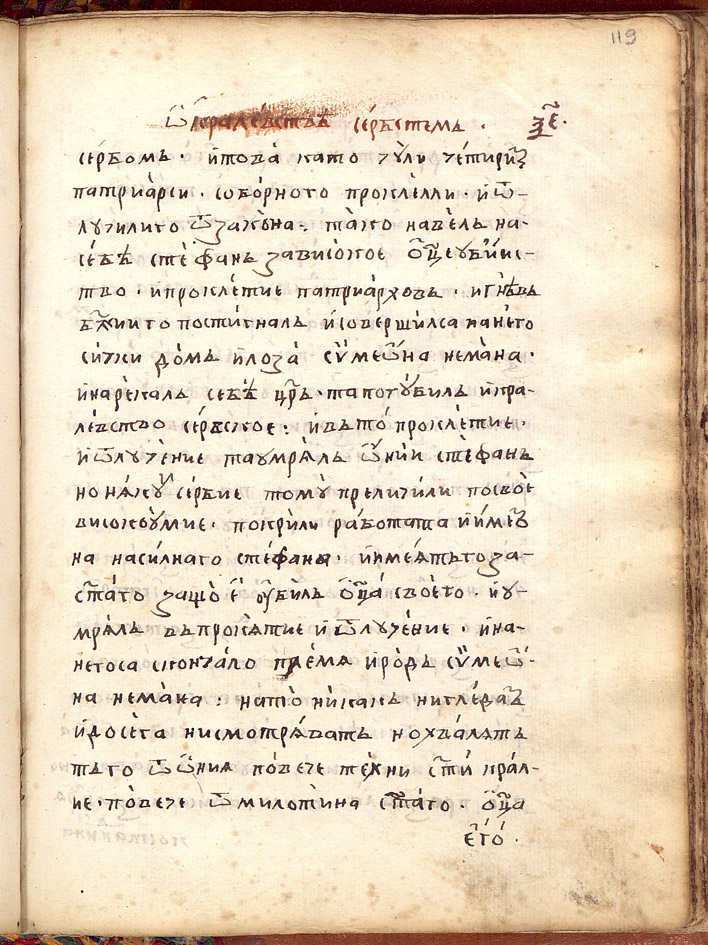 119
Ѿ кралевствѣ сербстемь · зє҃·
сербомь · и това като чули четирїи
патриарси · соборного проклелли · и ѿ-
лучили го ѿ закона · тако навель на-
себѣ стефань зависокое ѿцеубииис-
тво · и проклетие патриарховь · и гнѣвь
бж҃ии го постигналь и совершился на него
сички домь и лоза сѵмеѡна немана ·
и нарекаль себѣ цр҃ь · та погубиль и кра-
левство сербское : и в то проклетие ·
и ѿлучение та умряль ѡнии стефань
но някуи сербие тому преличили по свое
високоумие · покрили работата и имеѡ
на насилнаго стефана · и имеять го за-
ст҃аго защо є убиль ѿца своего · и у-
мряль в проклятие и ѿлучение · и на-
него са скончало племя и родь сѵмеѡ-
на немана : на то никакь ни гледаѡ
и досега ни смотрявать но хвалять
ть го ѿ ѡния повече техни ст҃и крал-
ие · повече ѿ милотина ст҃аго · ѿца
єго ·